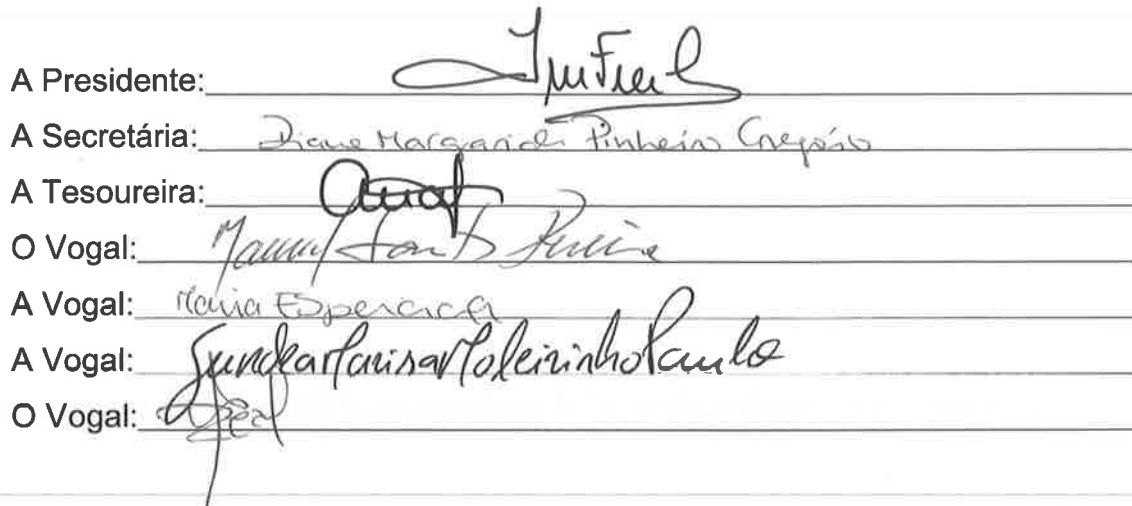 A Presidente:
A Secretária: Diana Margarida Pinheiro Gregório
A Tesoureira:
O Vogal: Manuel Santos Pereira
A Vogal: Maria Esperança
A Vogal: Marisa Moleirinho Paulo
O Vogal: